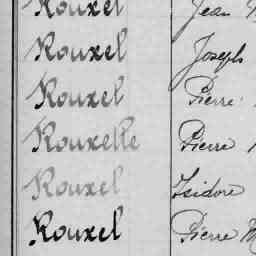 Rouxel Jean
Rouxel Joseph
Rouxel Pierre
Rouxelle Pierre
Rouxel Isidore
Rouxel Pierre M